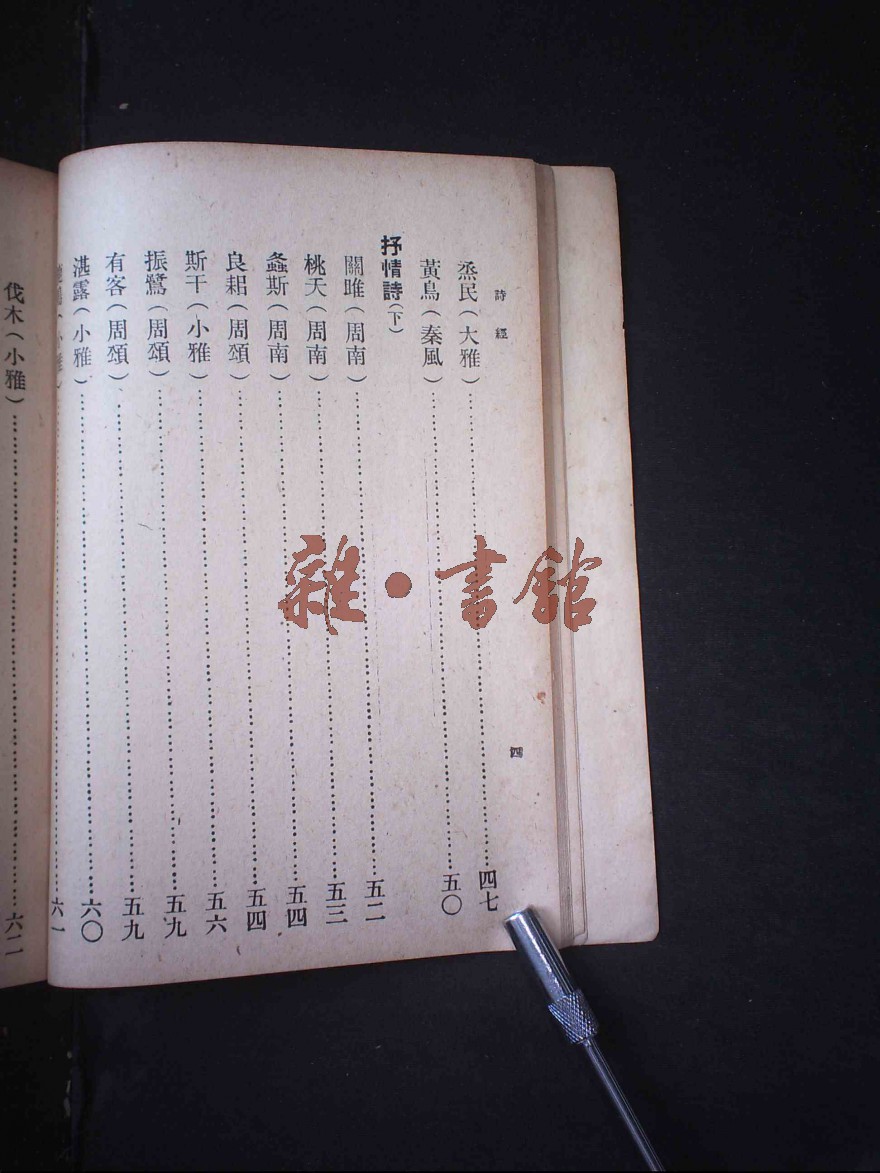 詩經
四
烝民(大雅)……四七
黃鳥(秦風)……五〇
抒情詩(下)
關雎(周南)……五二
桃夭(周南)……五三
螽斯(周南)……五四
良耜(周頌)……五四
斯干(小雅)……五六
振鷺(周頌)……五九
有客(周頌)……五九
湛露(小雅)……六〇
(小雅)……六一
伐木(小雅)……六二
雜·書館